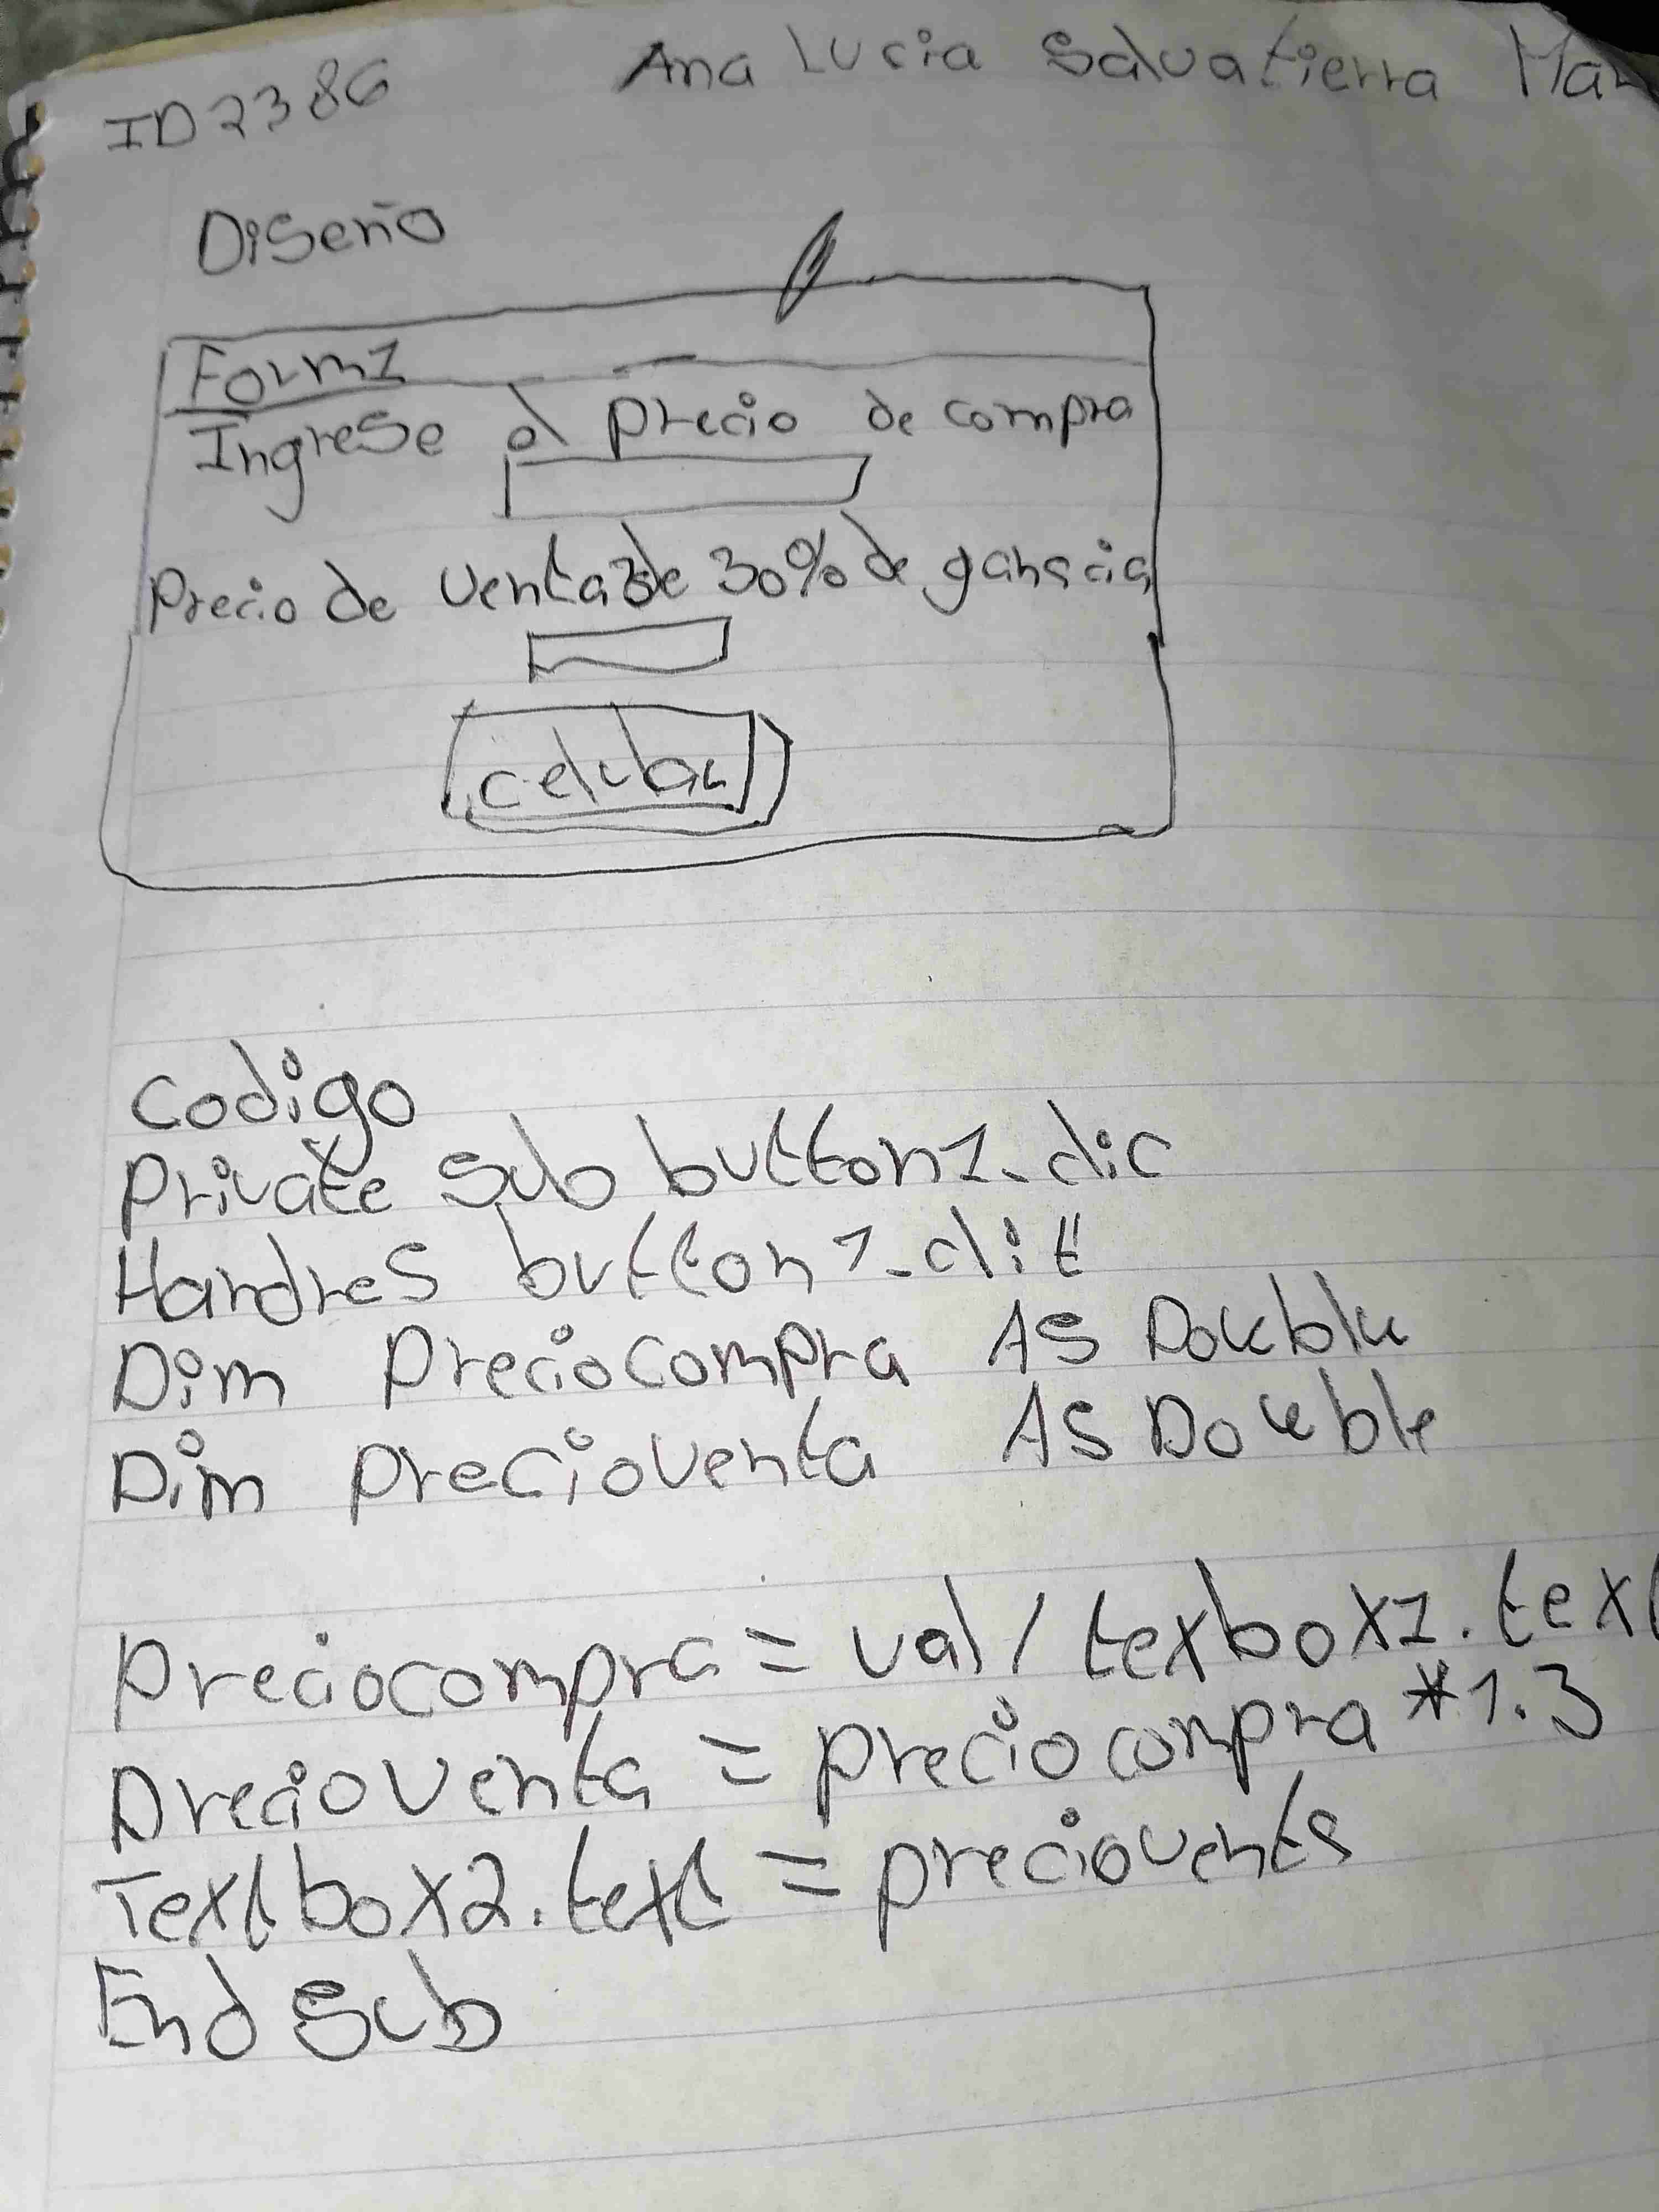 ID 2386 Ana Lucia Salvatierra Mar
Diseño
Form1
Ingrese el precio de compra
Precio de venta de 30% de ganacia
Codigo
Private Sub button1_clic
Handres button1_clit
Dim Preciocompra As Double
Dim precioventa As Double
Preciocompra = val / texbox1.text
Precioventa = preciocompra *1.3
Textbox2.text = precioventa
End Sub